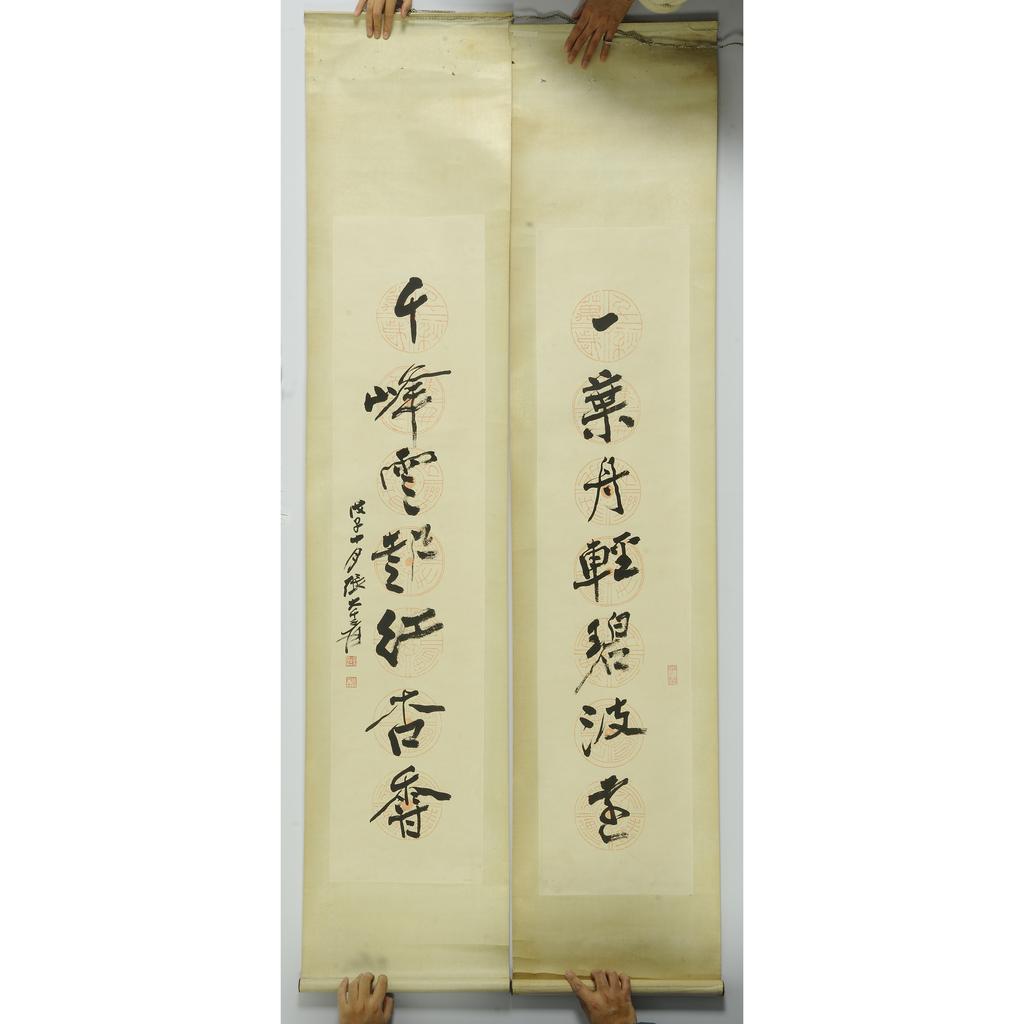 一葉舟輕碧波遠
千峰雲起紅杏香
戊子十月張大千爰